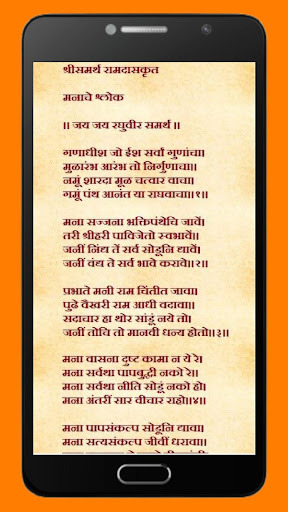 श्रीसमर्थ रामदासकृत
मनाचे श्लोक
॥ जय जय रघुवीर समर्थ ॥
गणाधीश जो ईश सर्वां गुणांचा।
मुळारंभ आरंभ तो निर्गुणाचा।
नमूं शारदा मूळ चत्वार वाचा।
गमूं पंथ आनंत या राघवाचा॥१॥
मना सज्जना भक्तिपंथेचि जावें।
तरी श्रीहरी पाविजेतो स्वभावें।
जनीं निंद्य तें सर्व सोडूनि द्यावें।
जनीं वंद्य ते सर्व भावे करावे॥२॥
प्रभाते मनी राम चिंतीत जावा।
पुढे वैखरी राम आधी वदावा।
सदाचार हा थोर सांडूं नये तो।
जनीं तोचि तो मानवी धन्य होतो॥३॥
मना वासना दुष्ट कामा न ये रे।
मना सर्वथा पापबुद्धी नको रे।
मना सर्वथा नीति सोडूं नको हो।
मना अंतरीं सार वीचार राहो॥४॥
मना पापसंकल्प सोडूनि द्यावा।
मना सत्यसंकल्प जीवीं धरावा।